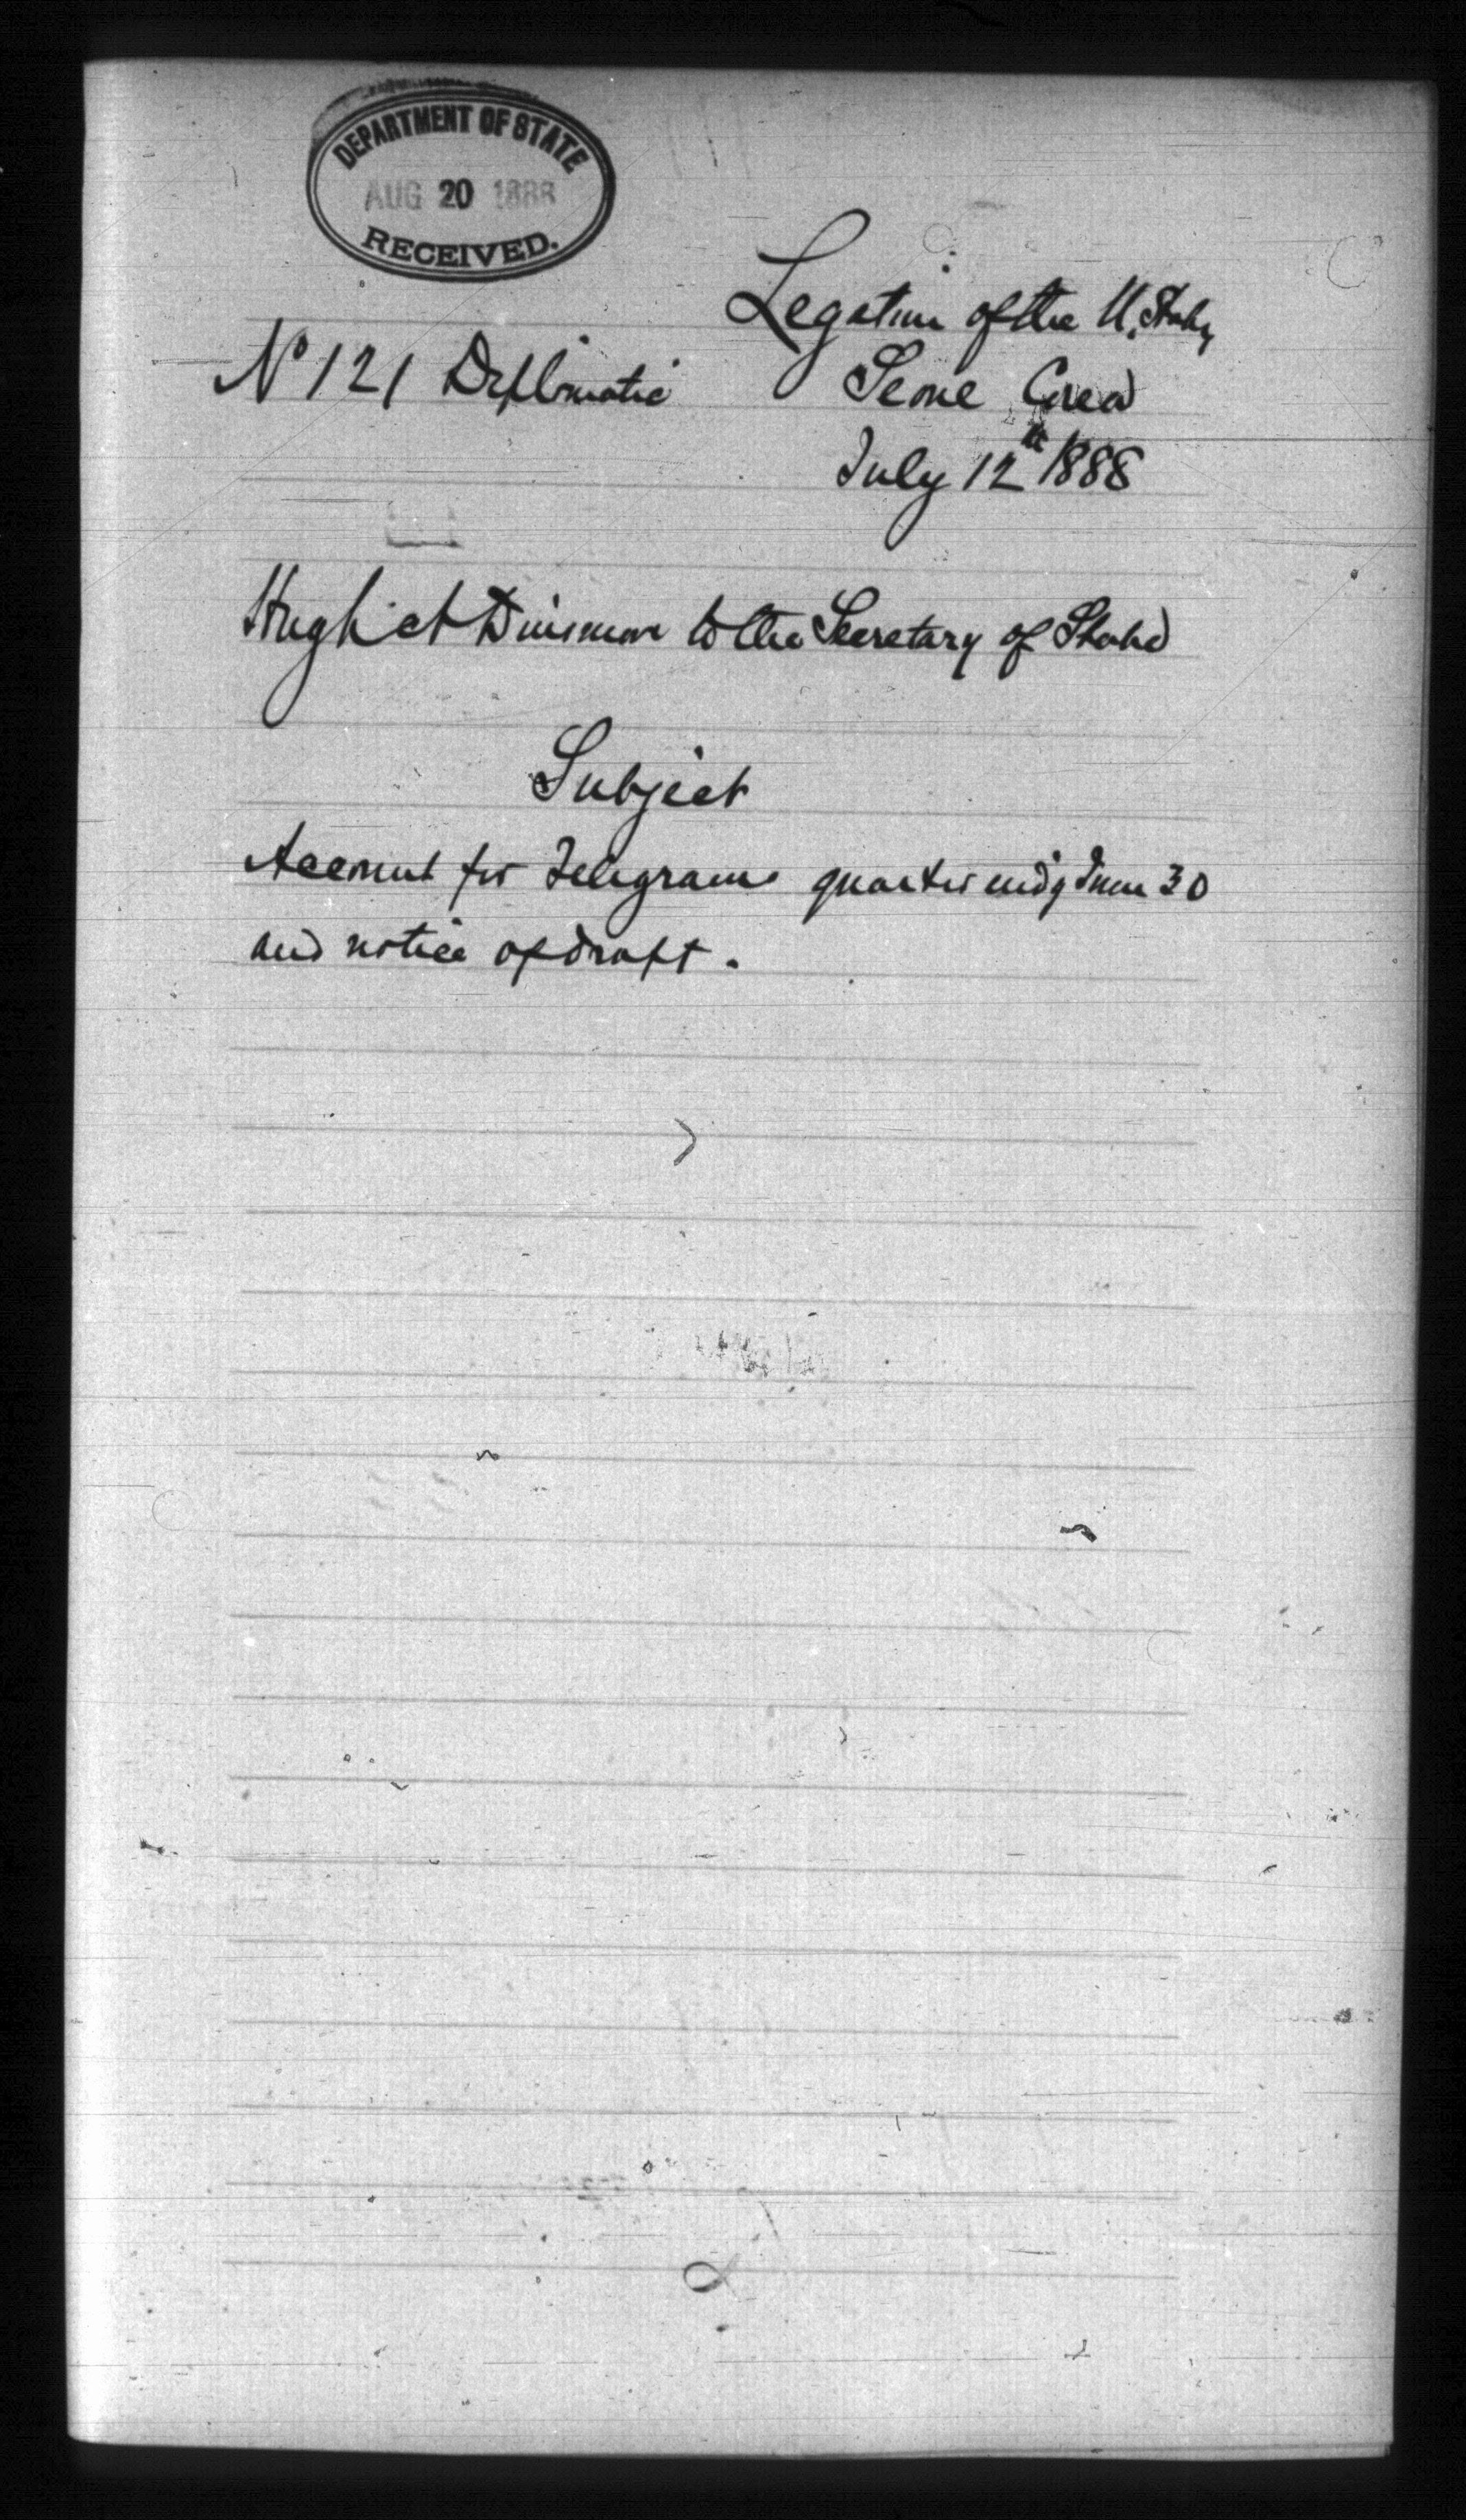 DEPARTMENT OF STATE
AUG 20 1888
RECEIVED.
Legation of the U. States
No 121 Diplomatic
Seoul Corea
July 12th 1888
Hugh A Dinsmore to the Secretary of State
Subject
Account for Telegrams quarter endg June 30
and notice of draft.